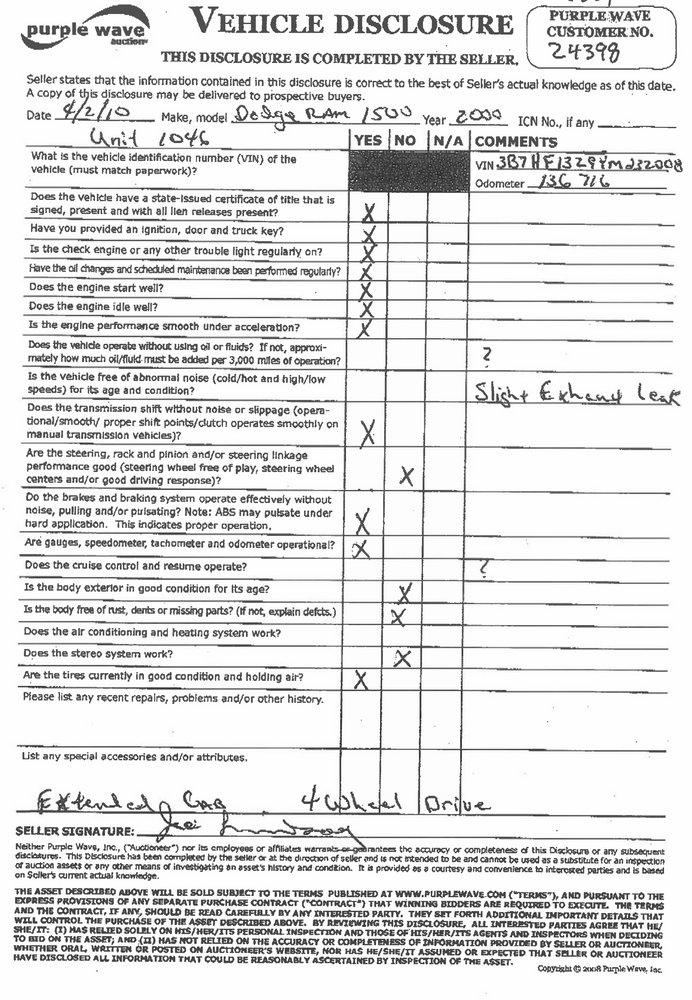 purple wave
auction
VEHICLE DISCLOSURE
THIS DISCLOSURE IS COMPLETED BY THE SELLER.
PURPLE WAVE
CUSTOMER NO.
24398
Seller states that the information contained in this disclosure is correct to the best of Seller's actual knowledge as of this date.
A copy of this disclosure may be delivered to prospective buyers.
Date 4/2/10 Make, model Dodge RAM 1500 Year 2000 ICN No., if any
Unit 1046
YES NO N/A COMMENTS
What is the vehicle identification number (VIN) of the
vehicle (must match paperwork)?
VIN
Odometer 136 716
Does the vehicle have a state-issued certificate of title that is
signed, present and with all lien releases present? X
Have you provided an ignition, door and truck key? X
Is the check engine or any other trouble light regularly on? X
Have the oil changes and scheduled maintenance been performed regularly? X
Does the engine start well? X
Does the engine idle well? X
Is the engine performance smooth under acceleration? X
Does the vehicle operate without using oil or fluids? If not, approxi-
mately how much oil/fluid must be added per 3,000 miles of operation? ?
Is the vehicle free of abnormal noise (cold/hot and high/low
speeds) for its age and condition? Slight Exhaust Leak
Does the transmission shift without noise or slippage (opera-
tional/smooth/ proper shift points/clutch operates smoothly on
manual transmission vehicles)? X
Are the steering, rack and pinion and/or steering linkage
performance good (steering wheel free of play, steering wheel
centers and/or good driving response)? X
Do the brakes and braking system operate effectively without
noise, pulling and/or pulsating? Note: ABS may pulsate under
hard application. This indicates proper operation. X
Are gauges, speedometer, tachometer and odometer operational? X
Does the cruise control and resume operate? ?
Is the body exterior in good condition for its age? X
Is the body free of rust, dents or missing parts? (If not, explain defcts.) X
Does the air conditioning and heating system work?
Does the stereo system work? X
Are the tires currently in good condition and holding air? X
Please list any recent repairs, problems and/or other history.
List any special accessories and/or attributes.
Extended Cab 4 Wheel Drive
SELLER SIGNATURE:
Neither Purple Wave, Inc., ("Auctioneer") nor its employees or affiliates warrants or guarantees the accuracy or completeness of this Disclosure or any subsequent
disclosures. This Disclosure has been completed by the seller or at the direction of seller and is not intended to be and cannot be used as a substitute for an inspection
of auction assets or any other means of investigating an asset's history and condition. It is provided as a courtesy and convenience to interested parties and is based
on Seller's current actual knowledge.
THE ASSET DESCRIBED ABOVE WILL BE SOLD SUBJECT TO THE TERMS PUBLISHED AT WWW.PURPLEWAVE.COM ("TERMS"), AND PURSUANT TO THE
EXPRESS PROVISIONS OF ANY SEPARATE PURCHASE CONTRACT ("CONTRACT") THAT WINNING BIDDERS ARE REQUIRED TO EXECUTE. THE TERMS
AND THE CONTRACT, IF ANY, SHOULD BE READ CAREFULLY BY ANY INTERESTED PARTY. THEY SET FORTH ADDITIONAL IMPORTANT DETAILS THAT
WILL CONTROL THE PURCHASE OF THE ASSET DESCRIBED ABOVE. BY REVIEWING THIS DISCLOSURE, ALL INTERESTED PARTIES AGREE THAT HE/
SHE/IT: (I) HAS RELIED SOLELY ON HIS/HER/ITS PERSONAL INSPECTION AND THOSE OF HIS/HER/ITS AGENTS AND INSPECTORS WHEN DECIDING
TO BID ON THE ASSET; AND (II) HAS NOT RELIED ON THE ACCURACY OR COMPLETENESS OF INFORMATION PROVIDED BY SELLER OR AUCTIONEER,
WHETHER ORAL, WRITTEN OR POSTED ON AUCTIONEER'S WEBSITE, NOR HAS HE/SHE/IT ASSUMED OR EXPECTED THAT SELLER OR AUCTIONEER
HAVE DISCLOSED ALL INFORMATION THAT COULD BE REASONABLY ASCERTAINED BY INSPECTION OF THE ASSET.
Copyright © 2008 Purple Wave, Inc.